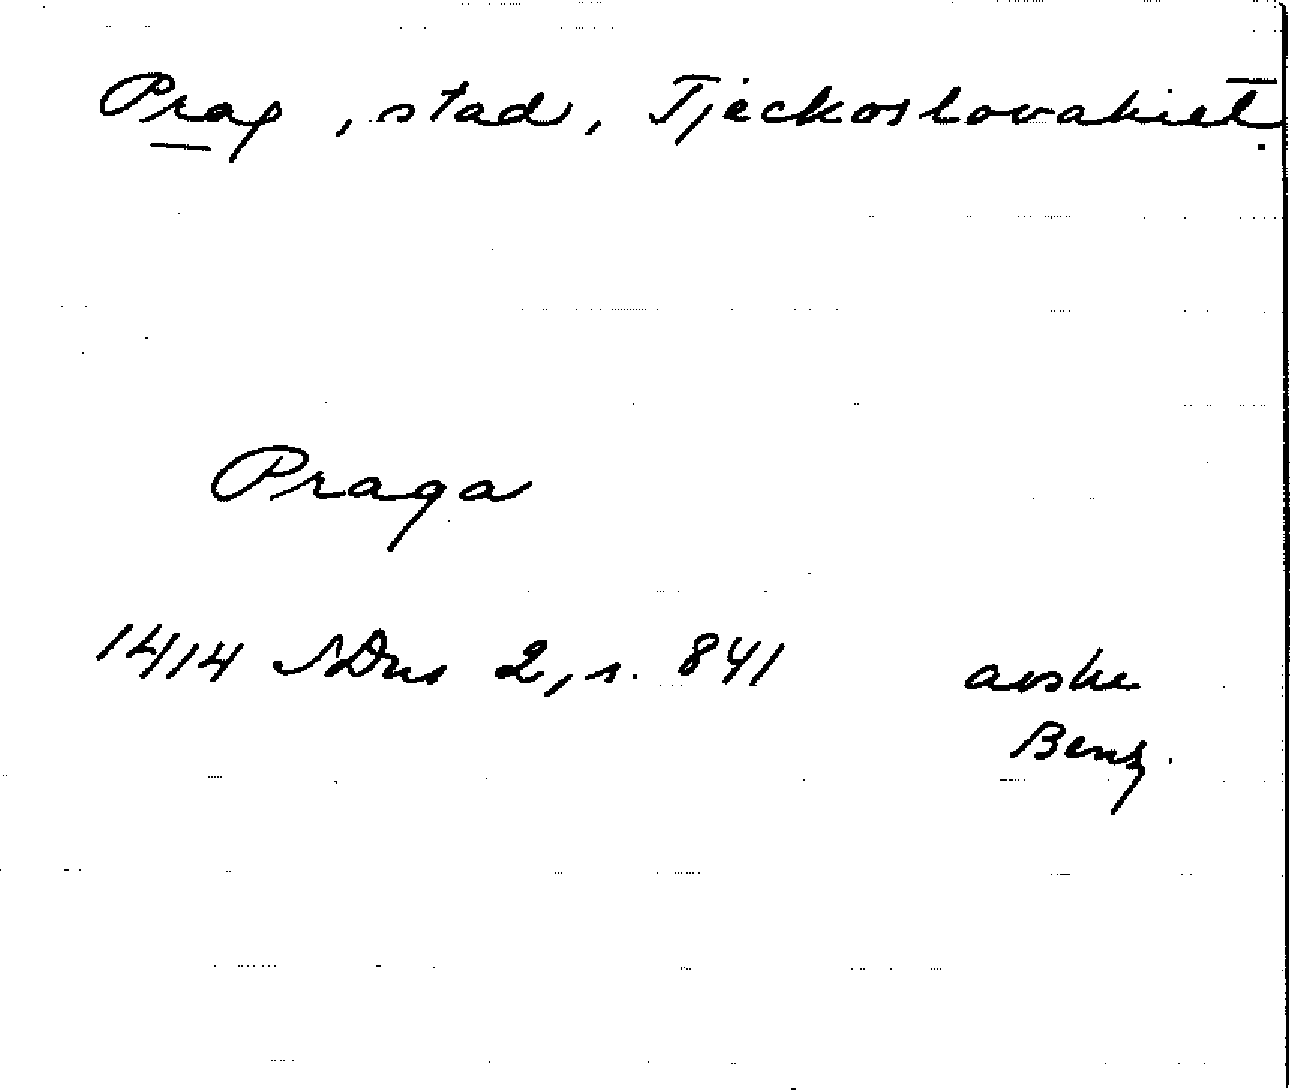 Prag, stad, Tjeckoslovakiet.
Praga
1414 SDns 2, s. 841 avskr
Benz.